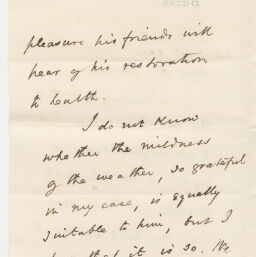 BUCKS.
pleasure his friends will
hear of his restoration
to health.
I do not know
whether the mildness
of the weather, so grateful
in my case, is equally
suitable to him, but I
that it is so. We